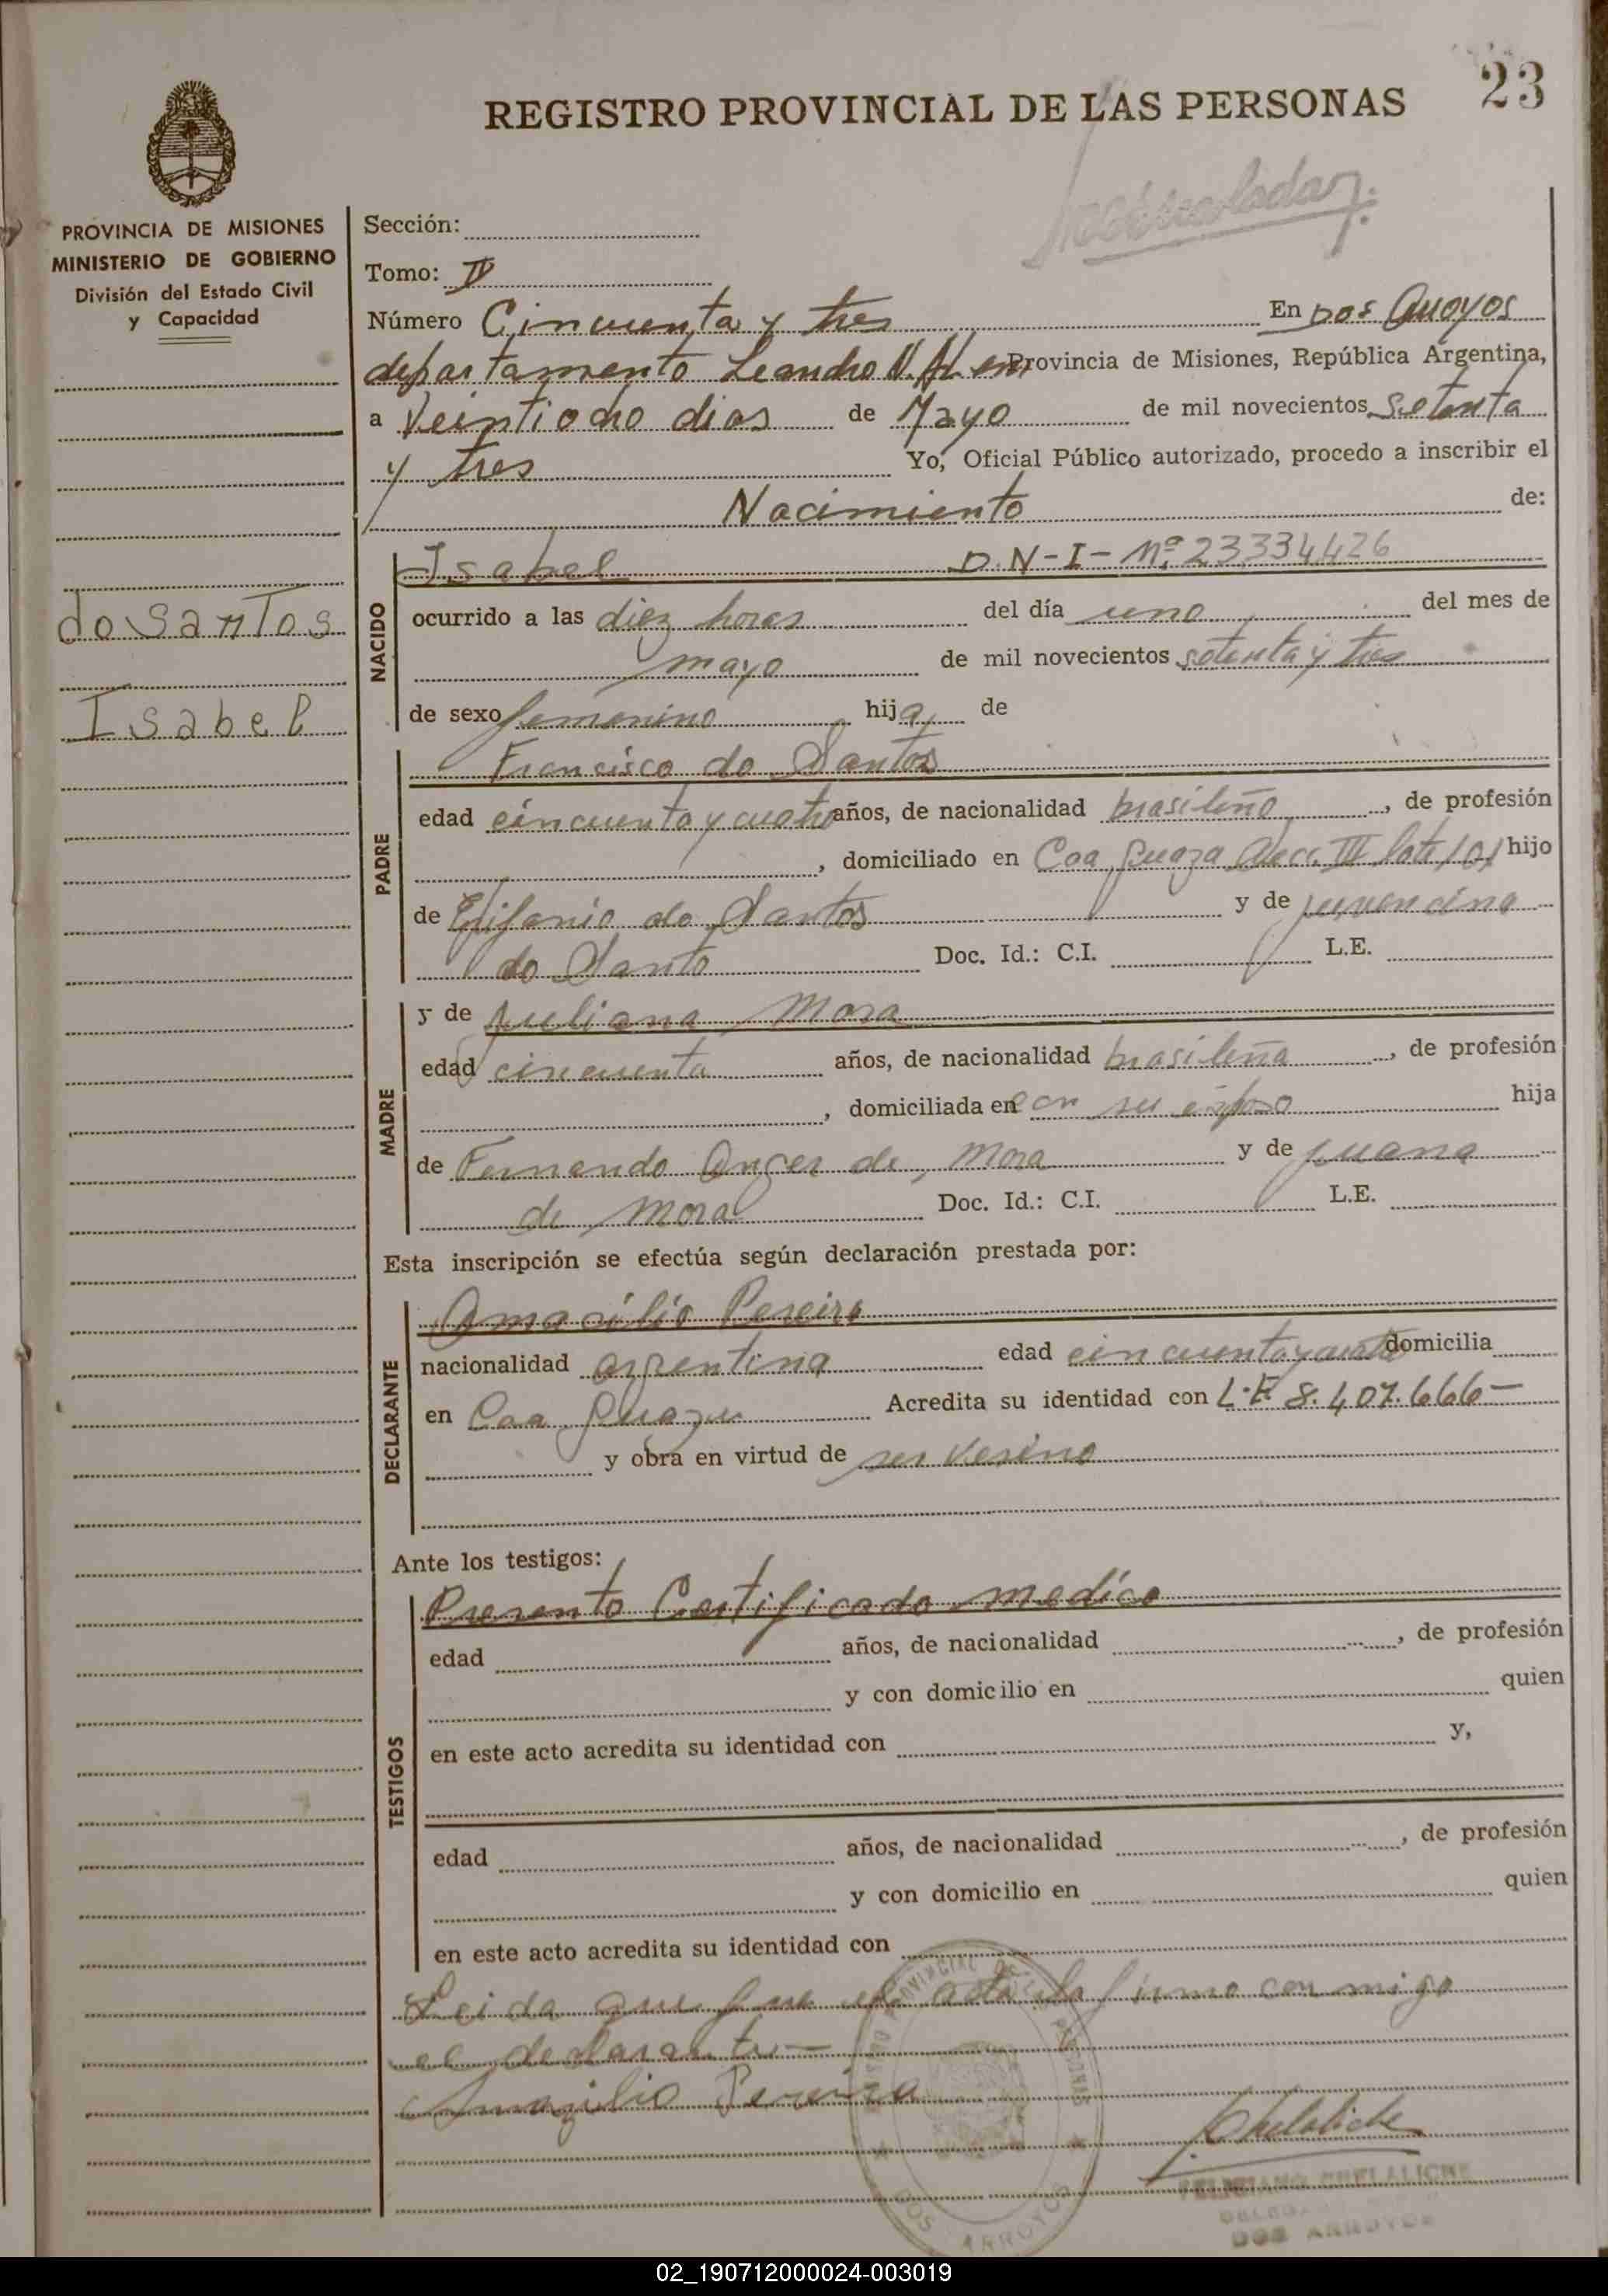 23
REGISTRO PROVINCIAL DE LAS PERSONAS
PROVINCIA DE MISIONES
MINISTERIO DE GOBIERNO
División del Estado Civil
y Capacidad
do Santos
Isabel
Sección:
Tomo: II
Número Cincuenta y tres En Dos Arroyos
departamento Leandro N. Alem Provincia de Misiones, República Argentina,
a Veintiocho dias de Mayo de mil novecientos setenta
y tres Yo, Oficial Público autorizado, procedo a inscribir el
Nacimiento de:
NACIDO
Isabel D.N-I- Nº 23334426
ocurrido a las diez horas del día uno del mes de
mayo de mil novecientos setenta y tres
de sexo femenino hija de
PADRE
Francisco do Santos
edad cincuenta y cuatro años, de nacionalidad brasileño, de profesión
, domiciliado en Caa Guaza Secc. III lote 101 hijo
de Epifanio do Santos y de juvencina
do Santo Doc. Id.: C.I. L.E.
MADRE
y de Juliana Mora
edad cincuenta años, de nacionalidad brasileña, de profesión
, domiciliada en con su esposo hija
de Fernando de Mora y de Juana
de Mora Doc. Id.: C.I. L.E.
Esta inscripción se efectúa según declaración prestada por:
DECLARANTE
Amasilio Pereira
nacionalidad argentina edad cincuenta y cuatro domicilia
en Caa Guazu Acredita su identidad con L.E 8.407.666-
y obra en virtud de ser vesino
Ante los testigos:
TESTIGOS
Presento Certificado medico
edad años, de nacionalidad , de profesión
y con domicilio en quien
en este acto acredita su identidad con y,
edad años, de nacionalidad , de profesión
y con domicilio en quien
en este acto acredita su identidad con
Leida que fue el acta la firmo con migo
el declarante-
Amazilio Pereira
FELICIANO CHELALICHE
DOS ARROYOS
DOS ARROYOS
02_190712000024-003019